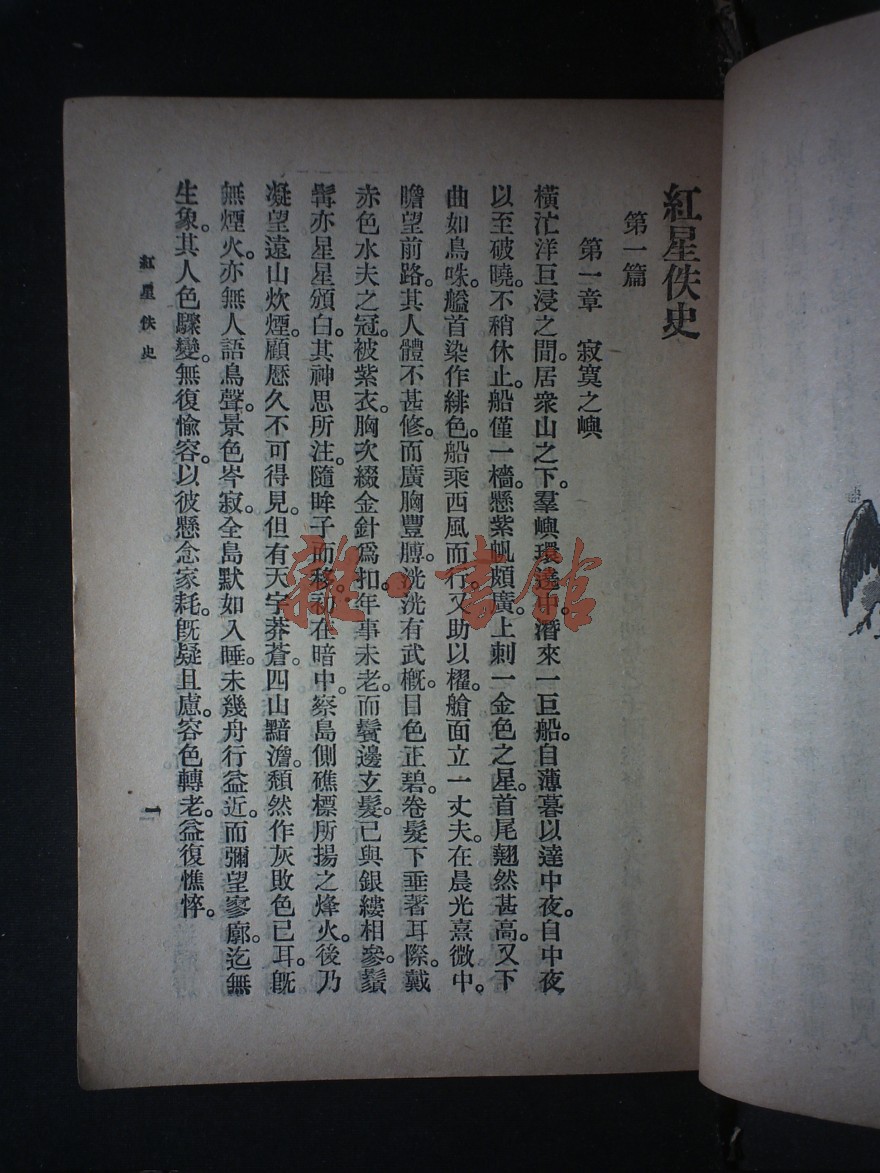 紅星佚史
第一篇
第一章　寂寞之嶼
橫茫洋巨浸之間。居衆山之下。羣嶼環達中。潛來一巨船。自薄暮以達中夜。自中夜
以至破曉。不稍休止。船僅一檣。懸紫帆頗廣。上刺一金色之星。首尾翹然甚高。又下
曲如鳥咮。艗首染作緋色。船乘西風而行。又助以櫂。艙面立一丈夫。在晨光熹微中。
瞻望前路。其人體不甚修。而廣胸豐膊。洸洸有武概。目色正碧。卷髮下垂著耳際。戴
赤色水夫之冠。被紫衣。胸次綴金針爲扣。年事未老。而鬢邊玄髮。已與銀縷相參。鬚
髯亦星星頒白。其神思所注。隨眸子而移。初在暗中。察島側礁標所揚之烽火。後乃
凝望遠山炊煙。顧歷久不可得見。但有天宇莽蒼。四山黯澹。頹然作灰敗色已耳。旣
無煙火。亦無人語鳥聲。景色岑寂。全島默如入睡。未幾舟行益近。而彌望寥廓。迄無
生象。其人色驟變。無復愉容。以彼懸念家耗。旣疑且慮。容色轉老。益復憔悴。
紅星佚史
一
雜·書館